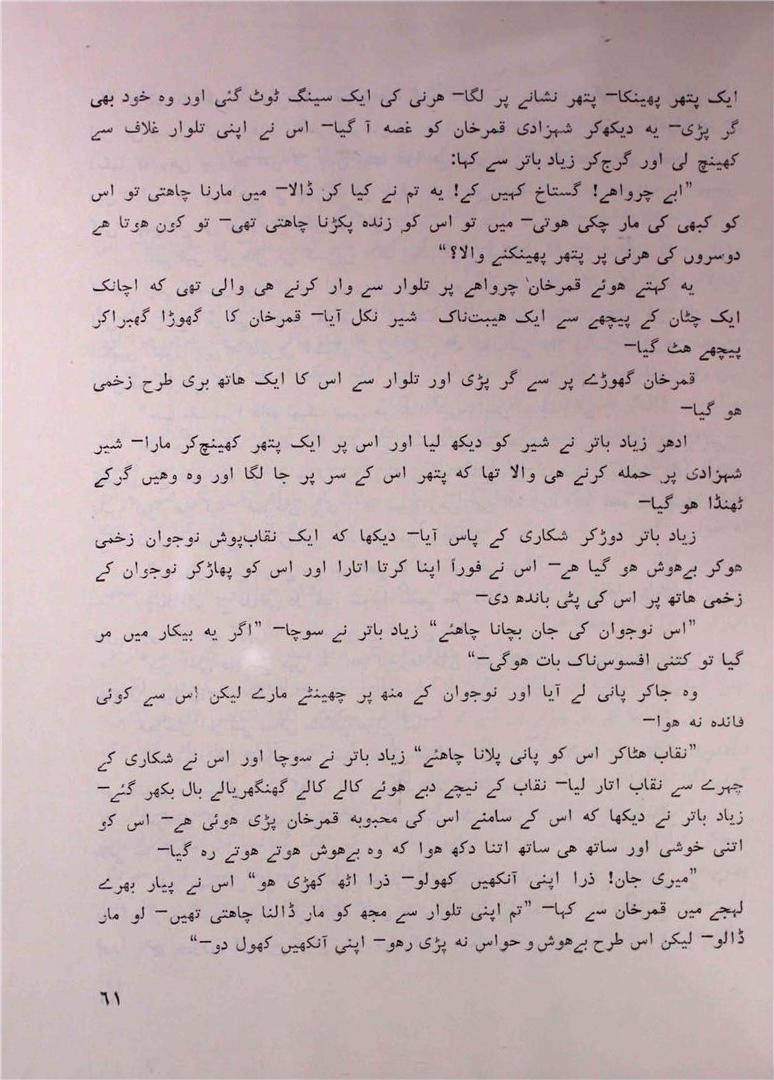 ایک پتھر پھینکا— پتھر نشانے پر لگا— ھرنی کی ایک سینگ ٹوٹ گئی اور وہ خود بھی
گر پڑی— یہ دیکھ‌کر شہزادی قمرخان کو غصہ آ گیا— اس نے اپنی تلوار غلاف سے
کھینچ لی اور گرج‌کر زیاد باتر سے کہا:
”ابے چرواھے! گستاخ کہیں کے! یہ تم نے کیا کر ڈالا— میں مارنا چاھتی تو اس
کو کبھی کی مار چکی ھوتی— میں تو اس کو زندہ پکڑنا چاھتی تھی— تو کون ھوتا ھے
دوسروں کی ھرنی پر پتھر پھینکنے والا؟“
یہ کہتے ھوئے قمرخان چرواھے پر تلوار سے وار کرنے ھی والی تھی کہ اچانک
ایک چٹان کے پیچھے سے ایک ھیبت‌ناک شیر نکل آیا— قمرخان کا گھوڑا گھبراکر
پیچھے ھٹ گیا—
قمرخان گھوڑے پر سے گر پڑی اور تلوار سے اس کا ایک ھاتھ بری طرح زخمی
ھو گیا—
ادھر زیاد باتر نے شیر کو دیکھ لیا اور اس پر ایک پتھر کھینچ‌کر مارا— شیر
شہزادی پر حملہ کرنے ھی والا تھا کہ پتھر اس کے سر پر جا لگا اور وہ وھیں گرکے
ٹھنڈا ھو گیا—
زیاد باتر دوڑکر شکاری کے پاس آیا— دیکھا کہ ایک نقاب‌پوش نوجوان زخمی
ھوکر بے‌ھوش ھو گیا ھے— اس نے فوراً اپنا کرتا اتارا اور اس کو پھاڑکر نوجوان کے
زخمی ھاتھ پر اس کی پٹی باندھ دی—
”اس نوجوان کی جان بچانا چاھئے“ زیاد باتر نے سوچا— ”اگر یہ بیکار میں مر
گیا تو کتنی افسوس‌ناک بات ھوگی—“
وہ جاکر پانی لے آیا اور نوجوان کے منھ پر چھینٹے مارے لیکن اس سے کوئی
فائدہ نہ ھوا—
”نقاب ھٹاکر اس کو پانی پلانا چاھئے“ زیاد باتر نے سوچا اور اس نے شکاری کے
چہرے سے نقاب اتار لیا— نقاب کے نیچے دبے ھوئے کالے کالے گھنگھریالے بال بکھر گئے—
زیاد باتر نے دیکھا کہ اس کے سامنے اس کی محبوبہ قمرخان پڑی ھوئی ھے— اس کو
اتنی خوشی اور ساتھ ھی ساتھ اتنا دکھ ھوا کہ وہ بے‌ھوش ھوتے ھوتے رہ گیا—
”میری جان! ذرا اپنی آنکھیں کھولو— ذرا اٹھ کھڑی ھو“ اس نے پیار بھرے
لہجے میں قمرخان سے کہا— ”تم اپنی تلوار سے مجھ کو مار ڈالنا چاھتی تھیں— لو مار
ڈالو— لیکن اس طرح بے‌ھوش و حواس نہ پڑی رھو— اپنی آنکھیں کھول دو—“
٦١